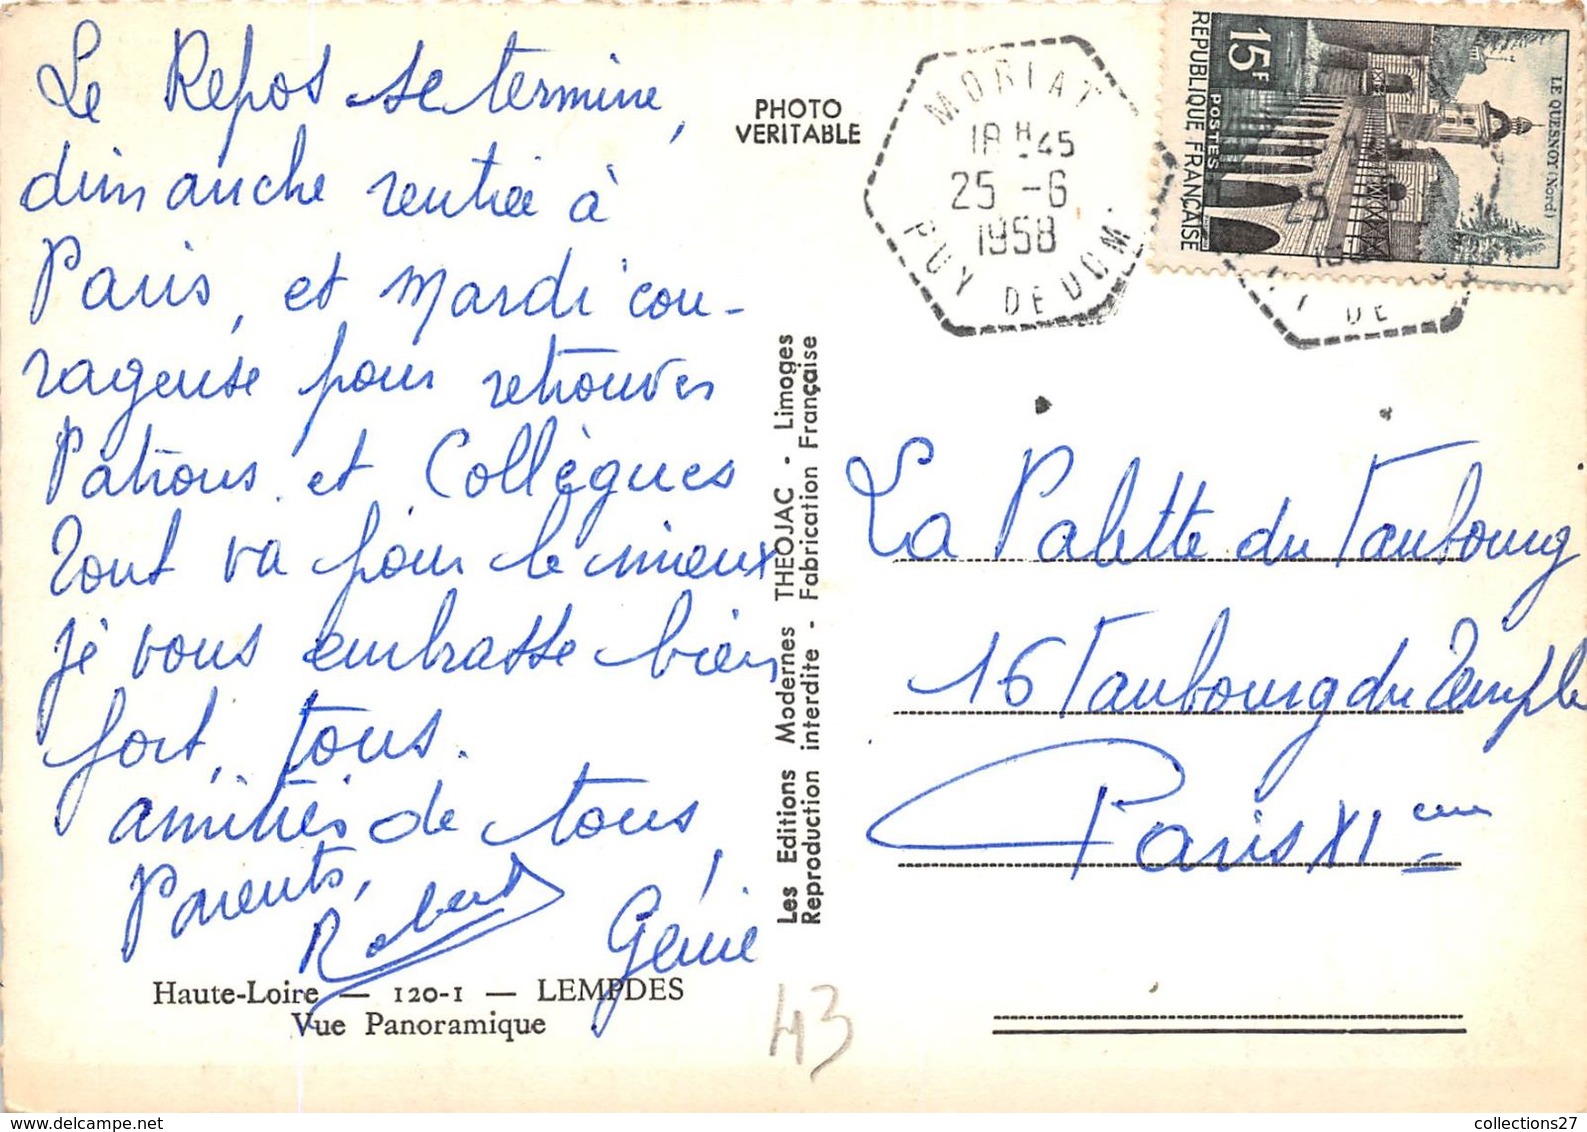 Le Repos se termine,
dimanche rentrée à
Paris, et Mardi cou-
rageuse pour retrouver
Patrons et Collègues
Tout va pour le mieux
je vous embrasse bien
fort, tous.
amitiés de tous,
Parents,
Robert Génie
Haute-Loire — 120-1 — LEMPDES
Vue Panoramique
43
PHOTO
VERITABLE
Les Editions Modernes THEOJAC - Limoges
Reproduction interdite - Fabrication Française
MORIAT
18H45
25 -6
1958
PUY DE DOM
15F
POSTES
REPUBLIQUE FRANÇAISE
LE QUESNOY (Nord)
25
DE
La Palette du Faubourg
16 Faubourg du Temple
Paris XI eme
collections27